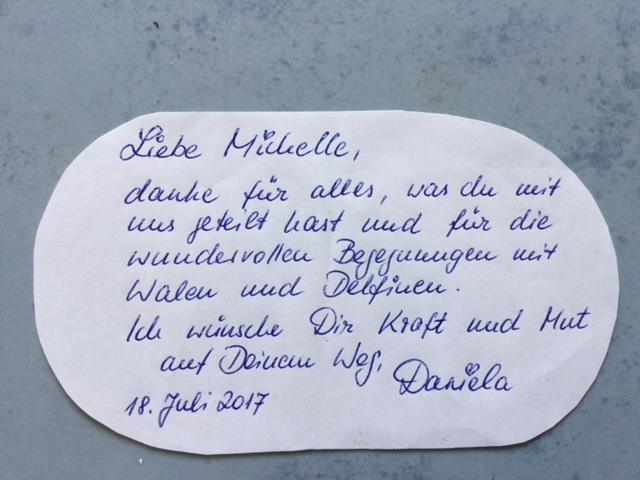 Liebe Michelle,
danke für alles, was du mit
uns geteilt hast und für die
wundervollen Begegnungen mit
Walen und Delfinen.
Ich wünsche Dir Kraft und Mut
auf Deinem Weg.
Daniela
18. Juli 2017